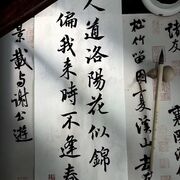 諸友
松竹留因夏溪山
人道洛陽花似錦
偏我來時不逢春
景載與謝公遊